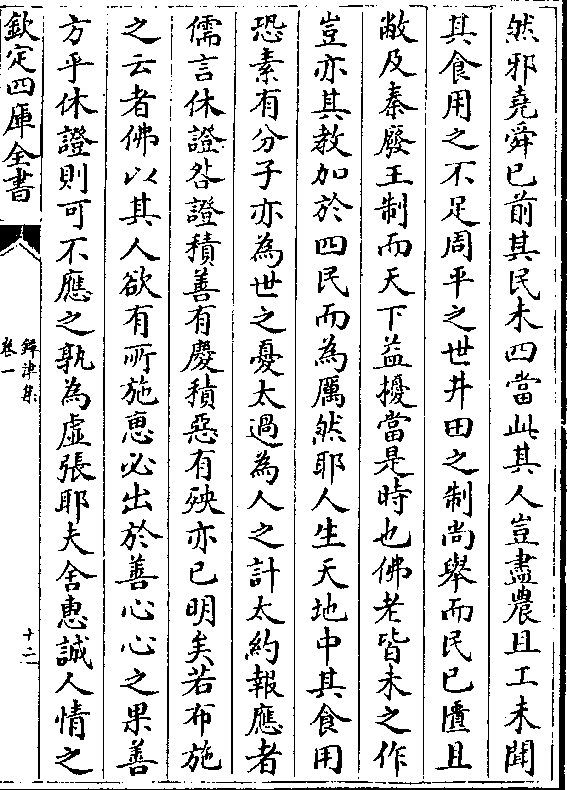 然邪堯舜已前其民未四當此其人豈盡農且工未聞
其食用之不足周平之世井田之制尚舉而民已匱且
敝及秦廢王制而天下益擾當是時也佛老皆未之作
豈亦其教加於四民而為厲然耶人生天地中其食用
恐素有分子亦為世之憂太過為人之計太約報應者
儒言休證咎證積善有慶積惡有殃亦已明矣若布施
之云者佛以其人欲有所施惠必出於善心心之果善
方乎休證則可不應之孰為虛張耶夫舍惠誠人情之
欽定四庫全書
鐔津集
卷一
十二